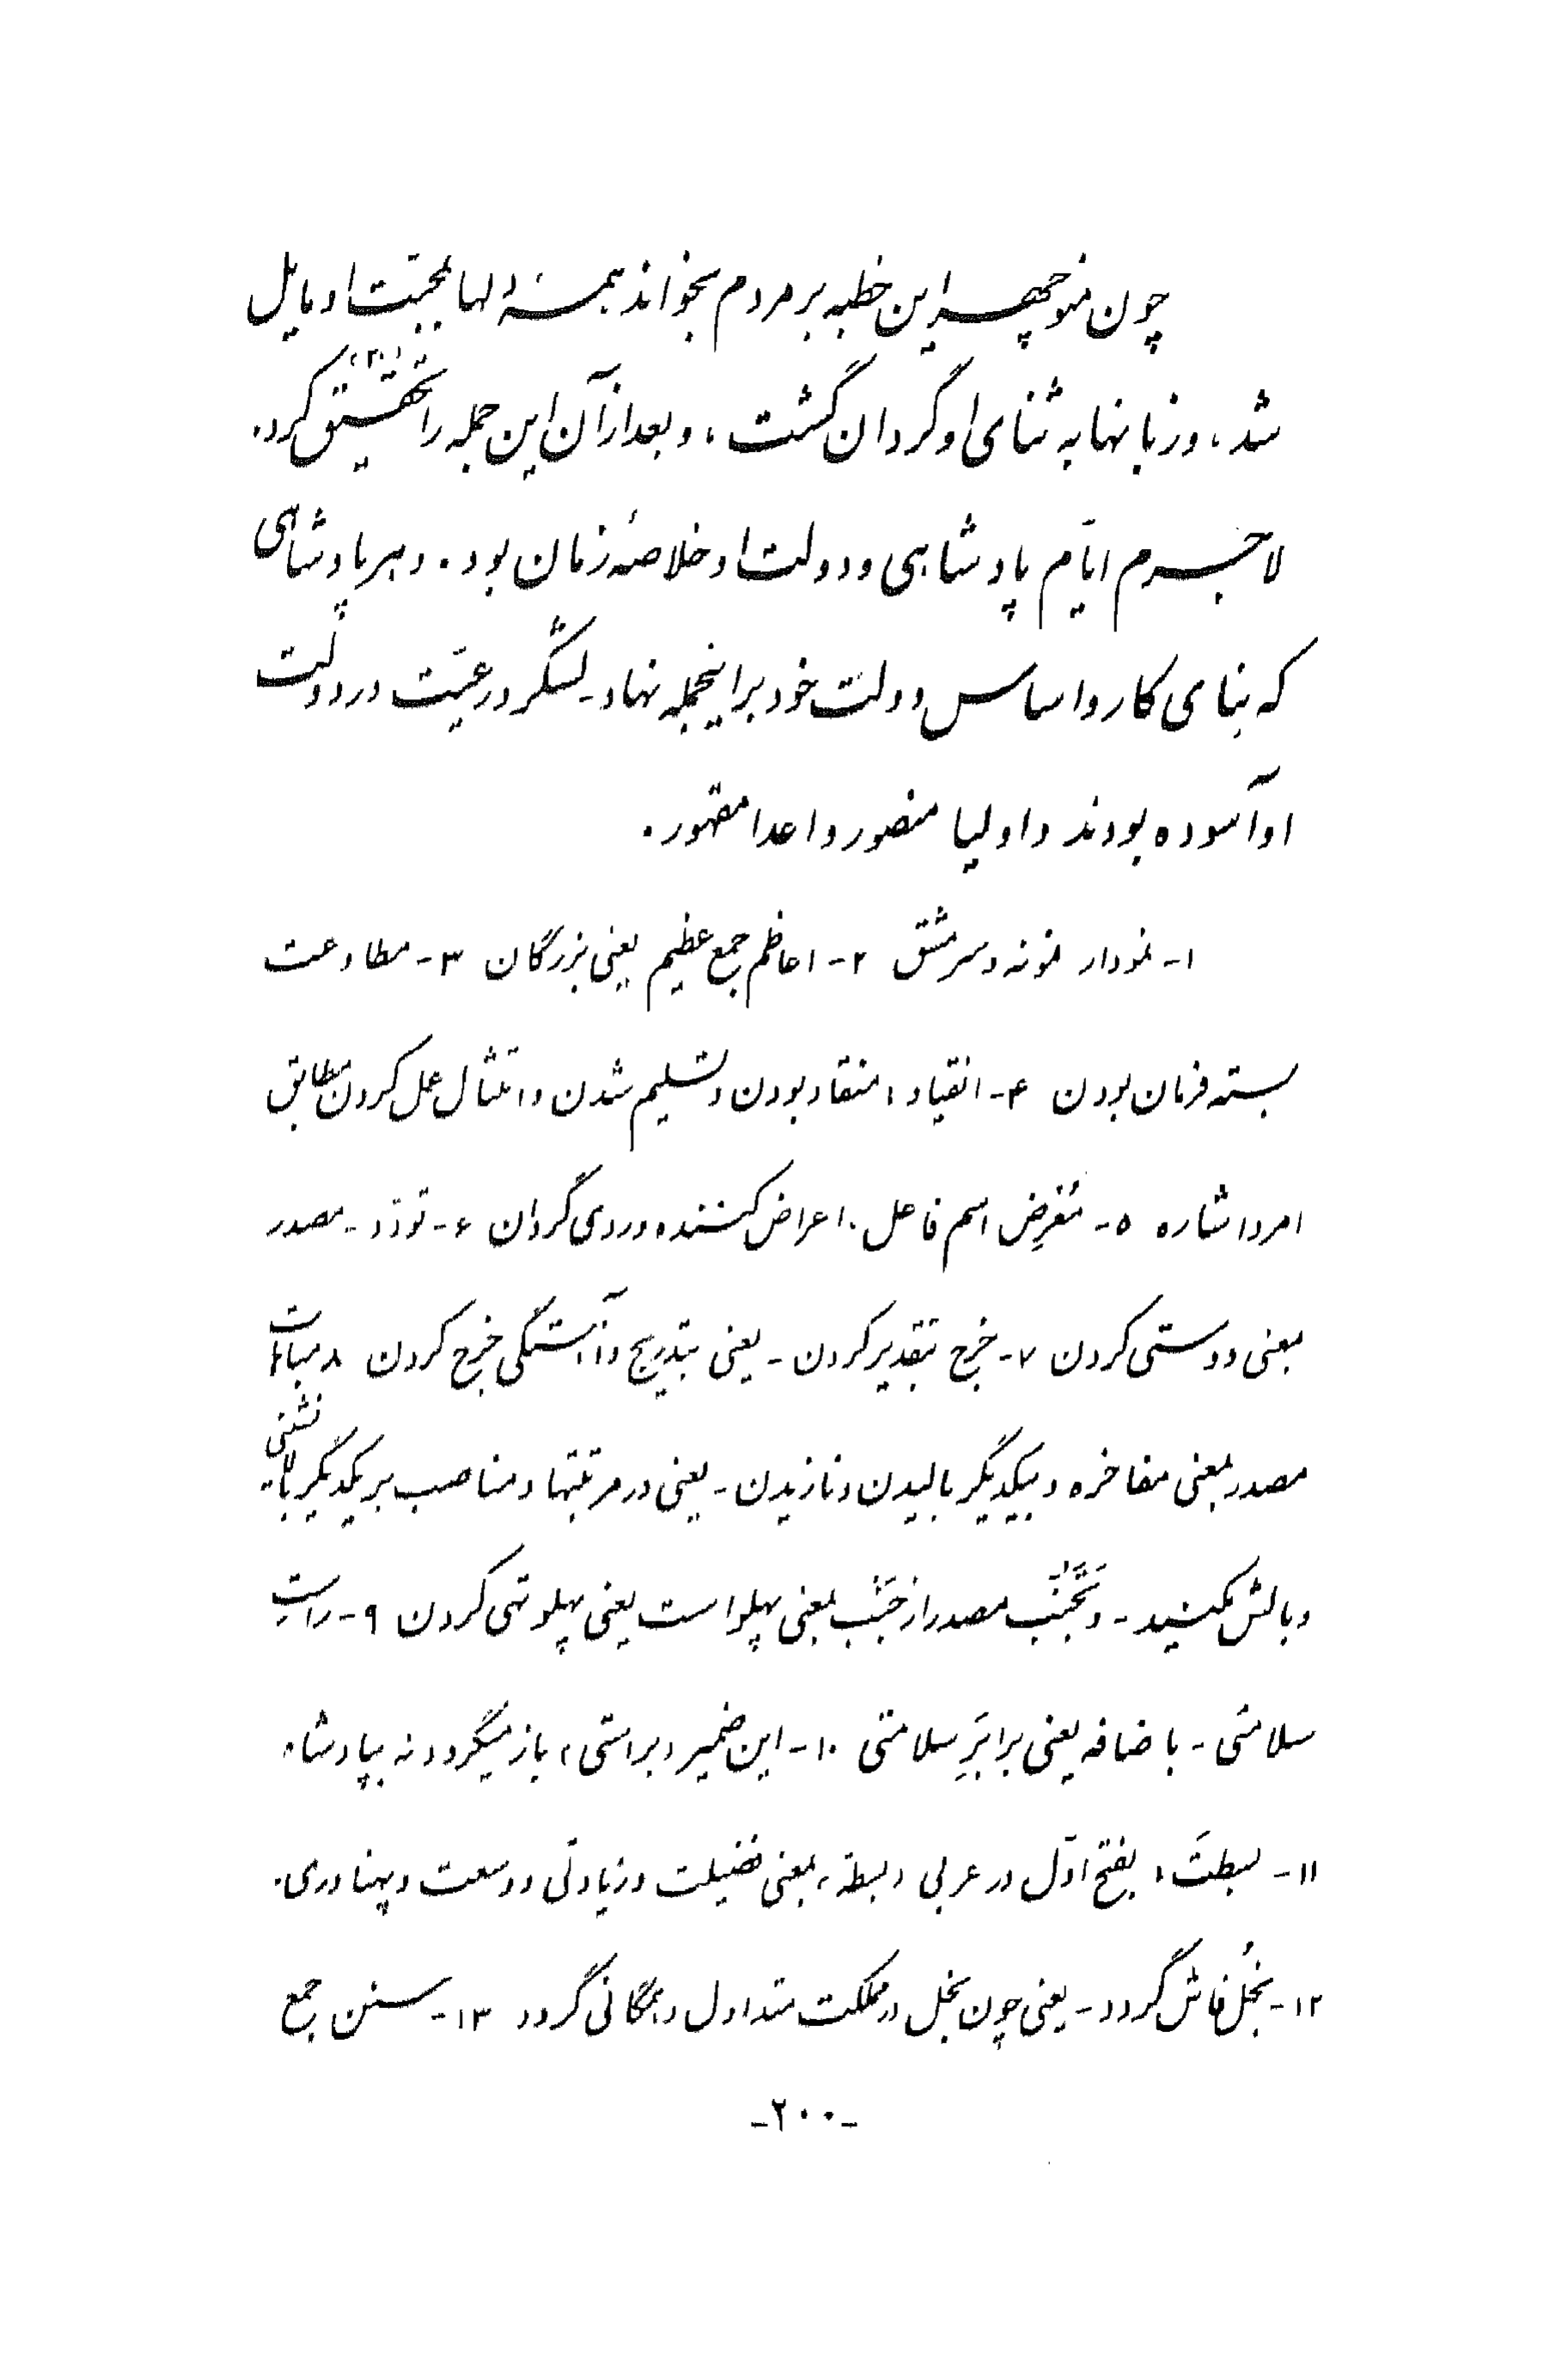 چون منوچهر این خطبه بر مردم بخواند همهٔ دلها بمحبّت او مایل
شد، و زبانها به ثنای او گردان گشت، و بعد از آن این جمله را تحقیق کرد.
لاجرم ایّام پادشاهی و دولت او خلاصهٔ زمان بود. و هر پادشاهی
که بنای کار و اساس دولت خود بر اینجمله نهاد - لشگر و رعیّت در دولت
او آسوده بودند و اولیا منصور و اعدا مقهور.
۱- نمودار نمونه و سرمشق ۲- اعاظم جمع عظیم یعنی بزرگان ۳- مطاوعت
بسته فرمان بودن ۴- انقیاد: منقاد بودن و تسلیم شدن و امتثال عمل کردن مطابق
امر و اشاره ۵- مُعْرِض اسم فاعل. اعراض کننده و روی گردان ۶- تودّد - مصدر
بمعنی دوستی کردن ۷- خرج بتقدیر کردن - یعنی بتدریج و آهستگی خرج کردن ۸- مباهات
مصدر بمعنی مفاخره و بیکدیگر بالیدن و نازیدن - یعنی در مرتبتها و مناصب بر یکدیگر بالانشینی
و بالش مکنید - و تَجَنُّب مصدر از جَنْب بمعنی پهلو است یعنی پهلو تهی کردن ۹- راستِ
سلامتی - باضافه یعنی برابَرِ سلامتی ۱۰- این ضمیر «براستی» باز میگردد نه بپادشاه
۱۱- بسطَت: بفتح اوّل در عربی «بسطة» بمعنی فضیلت و زیادتی و وسعت و پهناوری.
۱۲- بُخل فاش گردد - یعنی چون بخل در مملکت متداول و همگانی گردد ۱۳- سنن جمع
-۲۰۰-